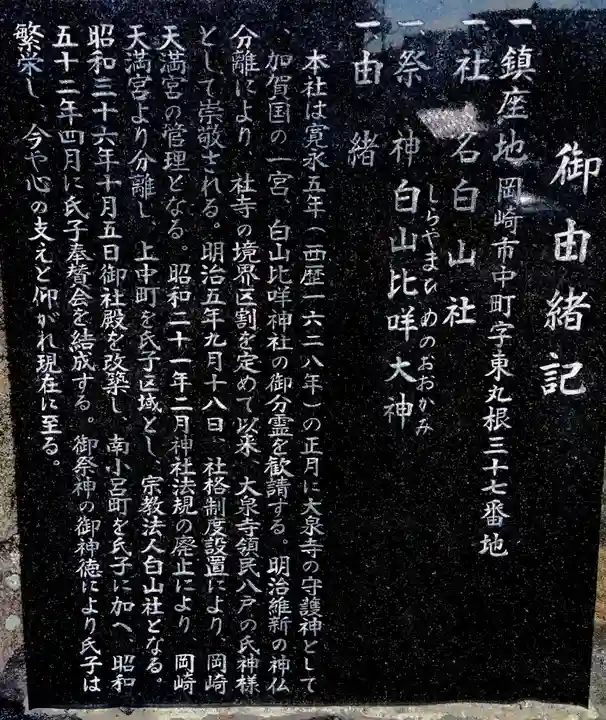 御由緒記
一鎮座地岡崎市中町字東丸根三十七番地
一社名白山社
一祭神白山比咩大神
しらやまひめのおおかみ
一由緒
本社は寛永五年(西歴一六二八年)の正月に大泉寺の守護神として
、加賀国の一宮、白山比咩神社の御分霊を歓請する。明治維新の神仏
分離により、社寺の境界区割を定めて以来、大泉寺領民八戸の氏神様
として崇敬される。明治五年九月十八日、社格制度設置により、岡崎
天満宮の管理となる。昭和二十一年二月神社法規の廃止により、岡崎
天満宮より分離し、上中町を氏子区域とし、宗教法人白山社となる。
昭和三十六年十月五日御社殿を改築し、南小呂町を氏子に加へ、昭和
五十二年四月に氏子奉賛会を結成する。御祭神の御神徳により氏子は
繁栄し、今や心の支えと仰がれ現在に至る。